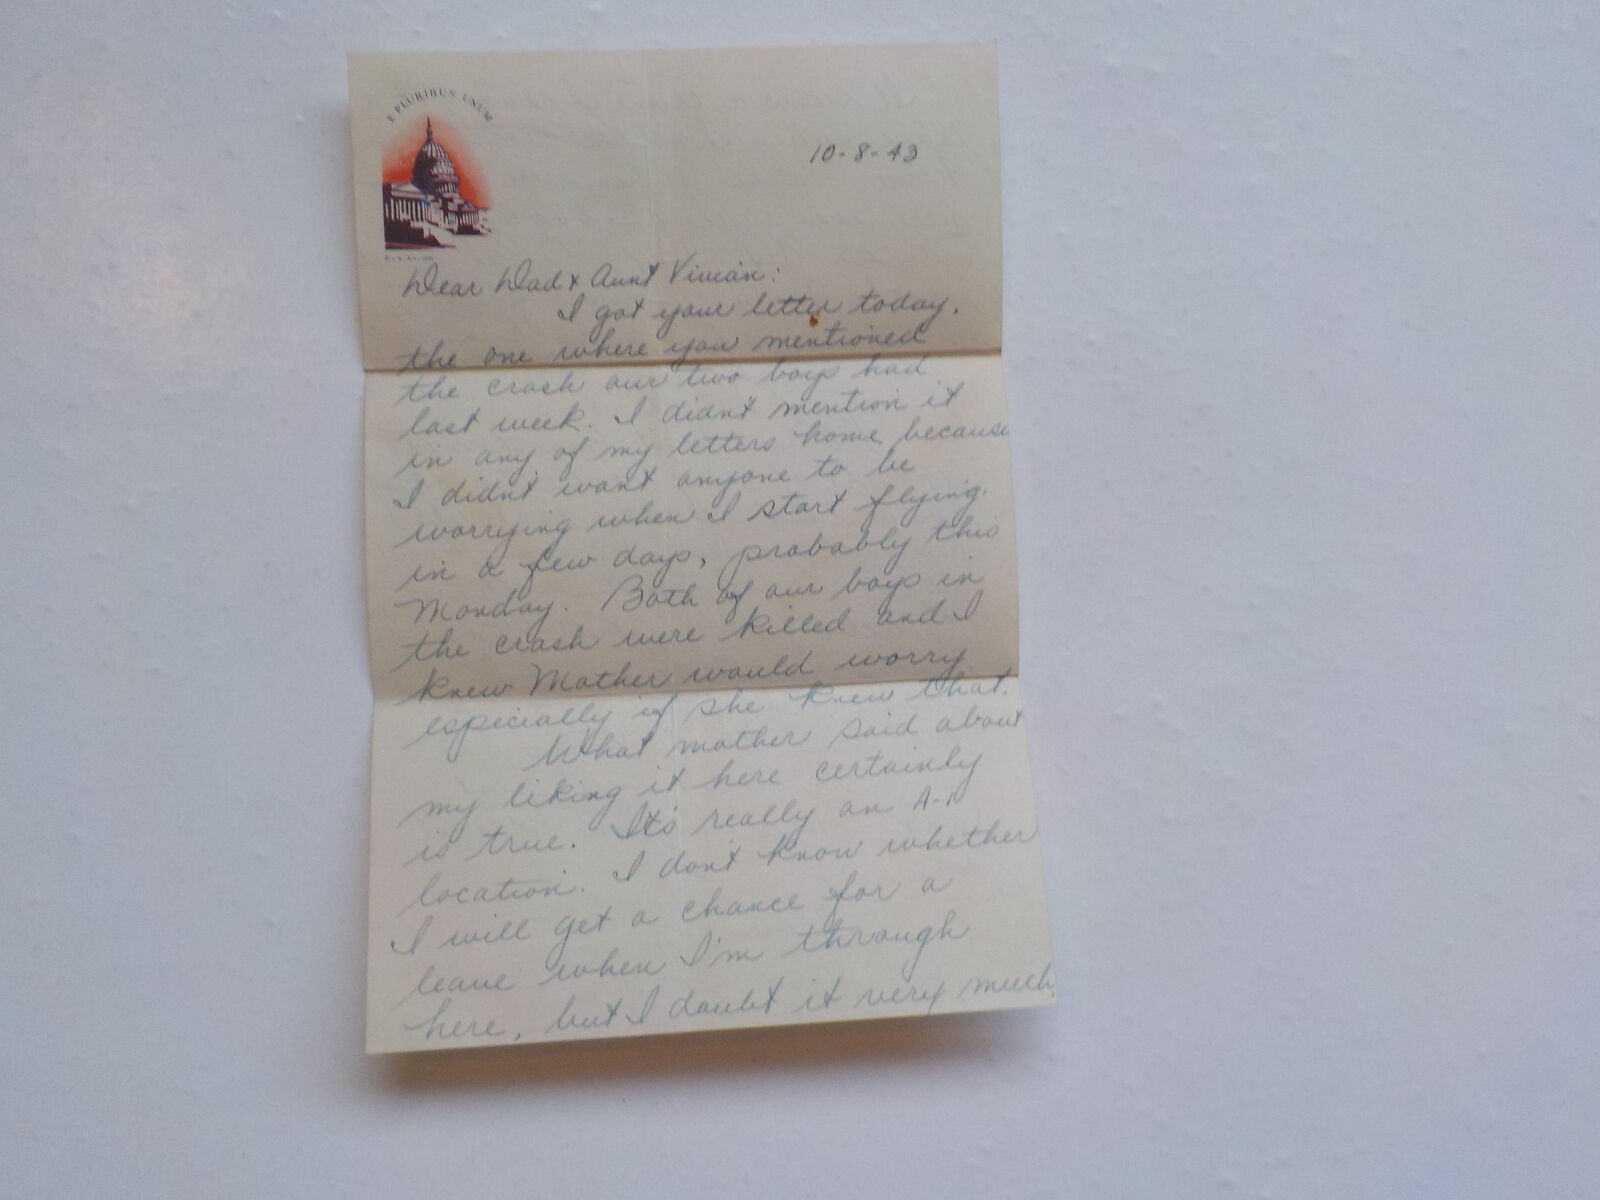 E PLURIBUS UNUM
10-8-43
Dear Dad & Aunt Vivian:
I got your letter today,
the one where you mentioned
the crash our two boys had
last week. I didn't mention it
in any of my letters home because
I didn't want anyone to be
worrying when I start flying
in a few days, probably this
Monday. Both of our boys in
the crash were killed and I
knew Mother would worry
especially if she knew that.
What mother said about
my liking it here certainly
is true. It's really an A-1
location. I don't know whether
I will get a chance for a
leave when I'm through
here, but I doubt it very much.